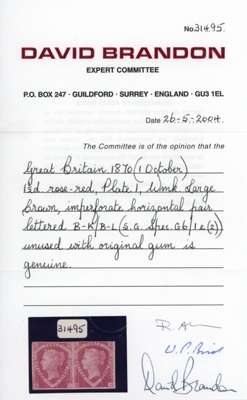 No. 31495.
DAVID BRANDON
EXPERT COMMITTEE
P.O. BOX 247 · GUILDFORD · SURREY · ENGLAND · GU3 1EL
Date 26-5-2004.
The Committee is of the opinion that the
Great Britain 1870 (1 October)
1½d rose-red, Plate 1, Wmk Large
Crown, imperforate horizontal pair
lettered B-K/B-L (S.G. Spec. G6/1e(2))
unused with original gum is
genuine.
31495
David Brandon